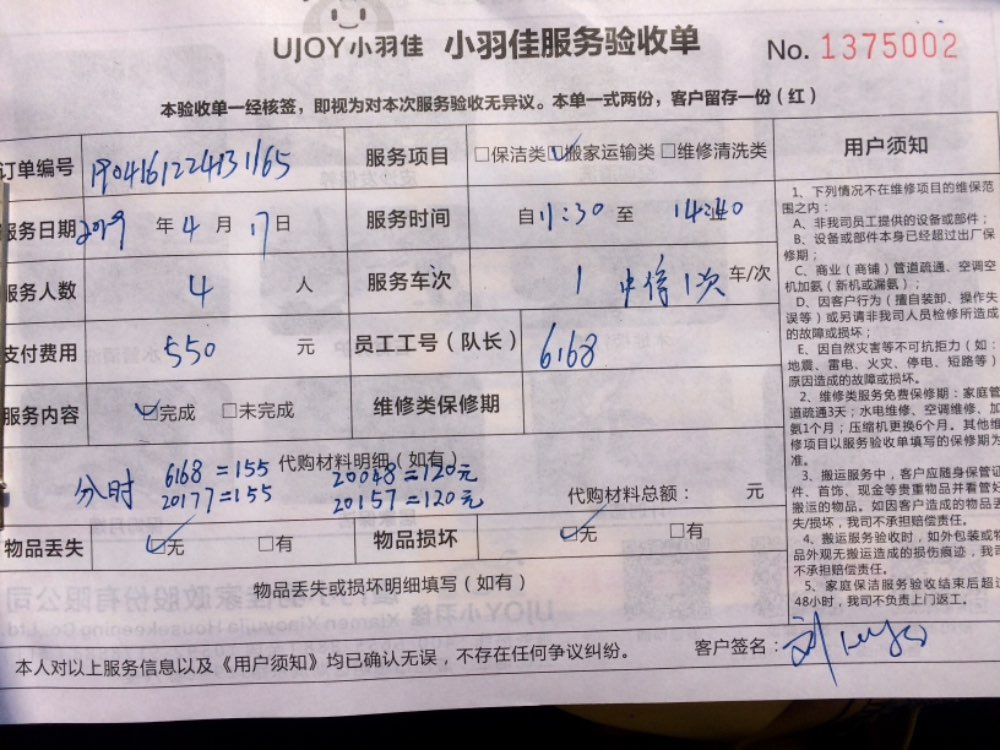 UJOY小羽佳 小羽佳服务验收单 No. 1375002
本验收单一经核签，即视为对本次服务验收无异议。本单一式两份，客户留存一份（红）
订单编号 服务项目 □保洁类 ☑搬家运输类 □维修清洗类
服务日期 2019 年 4 月 17 日 服务时间 自 11:30 至
服务人数 4 人 服务车次 1 中信1次 车/次
支付费用 550 元 员工工号（队长） 6168
服务内容 ☑完成 □未完成 维修类保修期
代购材料明细（如有）
分时 6168=155 20048=120元
20177=155 20157=120元
代购材料总额： 元
物品丢失 ☑无 □有 物品损坏 ☑无 □有
物品丢失或损坏明细填写（如有）
本人对以上服务信息以及《用户须知》均已确认无误，不存在任何争议纠纷。 客户签名：刘
用户须知
1、下列情况不在维修项目的维保范
围之内：
A、非我司员工提供的设备或部件；
B、设备或部件本身已经超过出厂保
修期；
C、商业（商铺）管道疏通、空调空
机加氨（新机或漏氨）；
D、因客户行为（擅自装卸、操作失
误等）或另请非我司人员检修所造成
的故障或损坏；
E、因自然灾害等不可抗拒力（如：
地震、雷电、火灾、停电、短路等）
原因造成的故障或损坏。
2、维修类服务免费保修期：家庭管
道疏通3天；水电维修、空调维修、加
氨1个月；压缩机更换6个月。其他维
修项目以服务验收单填写的保修期为
准。
3、搬运服务中，客户应随身保管证
件、首饰、现金等贵重物品并看管好
搬运的物品。如因客户造成的物品丢
失/损坏，我司不承担赔偿责任。
4、搬运服务验收时，如外包装或物
品外观无搬运造成的损伤痕迹，我司
不承担赔偿责任。
5、家庭保洁服务验收结束后超过
48小时，我司不负责上门返工。